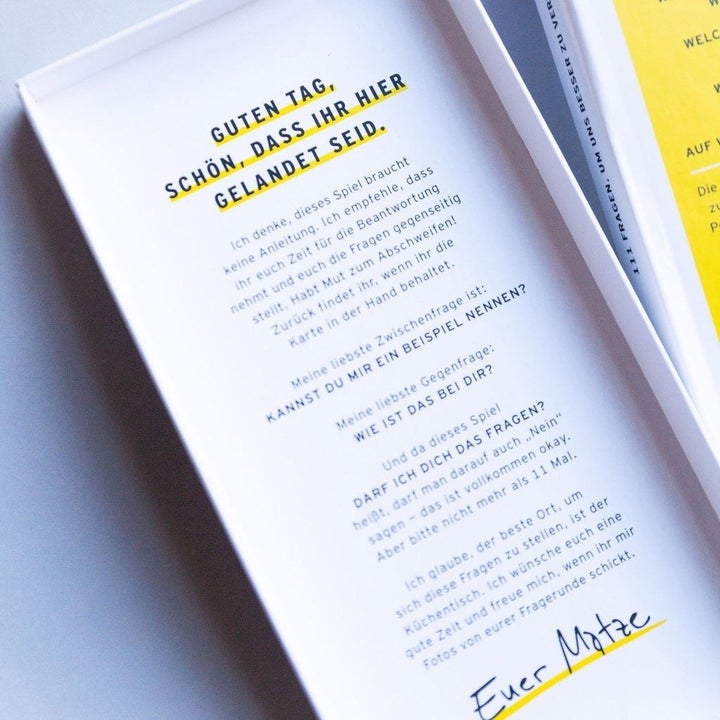 GUTEN TAG,
SCHÖN, DASS IHR HIER
GELANDET SEID.
Ich denke, dieses Spiel braucht
keine Anleitung. Ich empfehle, dass
ihr euch Zeit für die Beantwortung
nehmt und euch die Fragen gegenseitig
stellt. Habt Mut zum Abschweifen!
Zurück findet ihr, wenn ihr die
Karte in der Hand behaltet.
Meine liebste Zwischenfrage ist:
KANNST DU MIR EIN BEISPIEL NENNEN?
Meine liebste Gegenfrage:
WIE IST DAS BEI DIR?
Und da dieses Spiel
DARF ICH DICH DAS FRAGEN?
heißt, darf man darauf auch „Nein“
sagen – das ist vollkommen okay.
Aber bitte nicht mehr als 11 Mal.
Ich glaube, der beste Ort, um
sich diese Fragen zu stellen, ist der
Küchentisch. Ich wünsche euch eine
gute Zeit und freue mich, wenn ihr mir
Fotos von eurer Fragerunde schickt.
Euer Matze
111 FRAGEN, UM UNS BESSER ZU VER
WELC
AUF
Die
zu